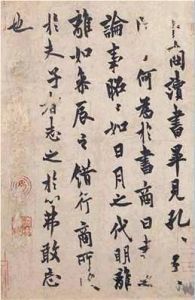 讀書畢見孔子
何為於書商曰書之
論事昭〻如日月之代明離
離如參辰之錯行商所
於夫子者志之於心弗敢忘
也